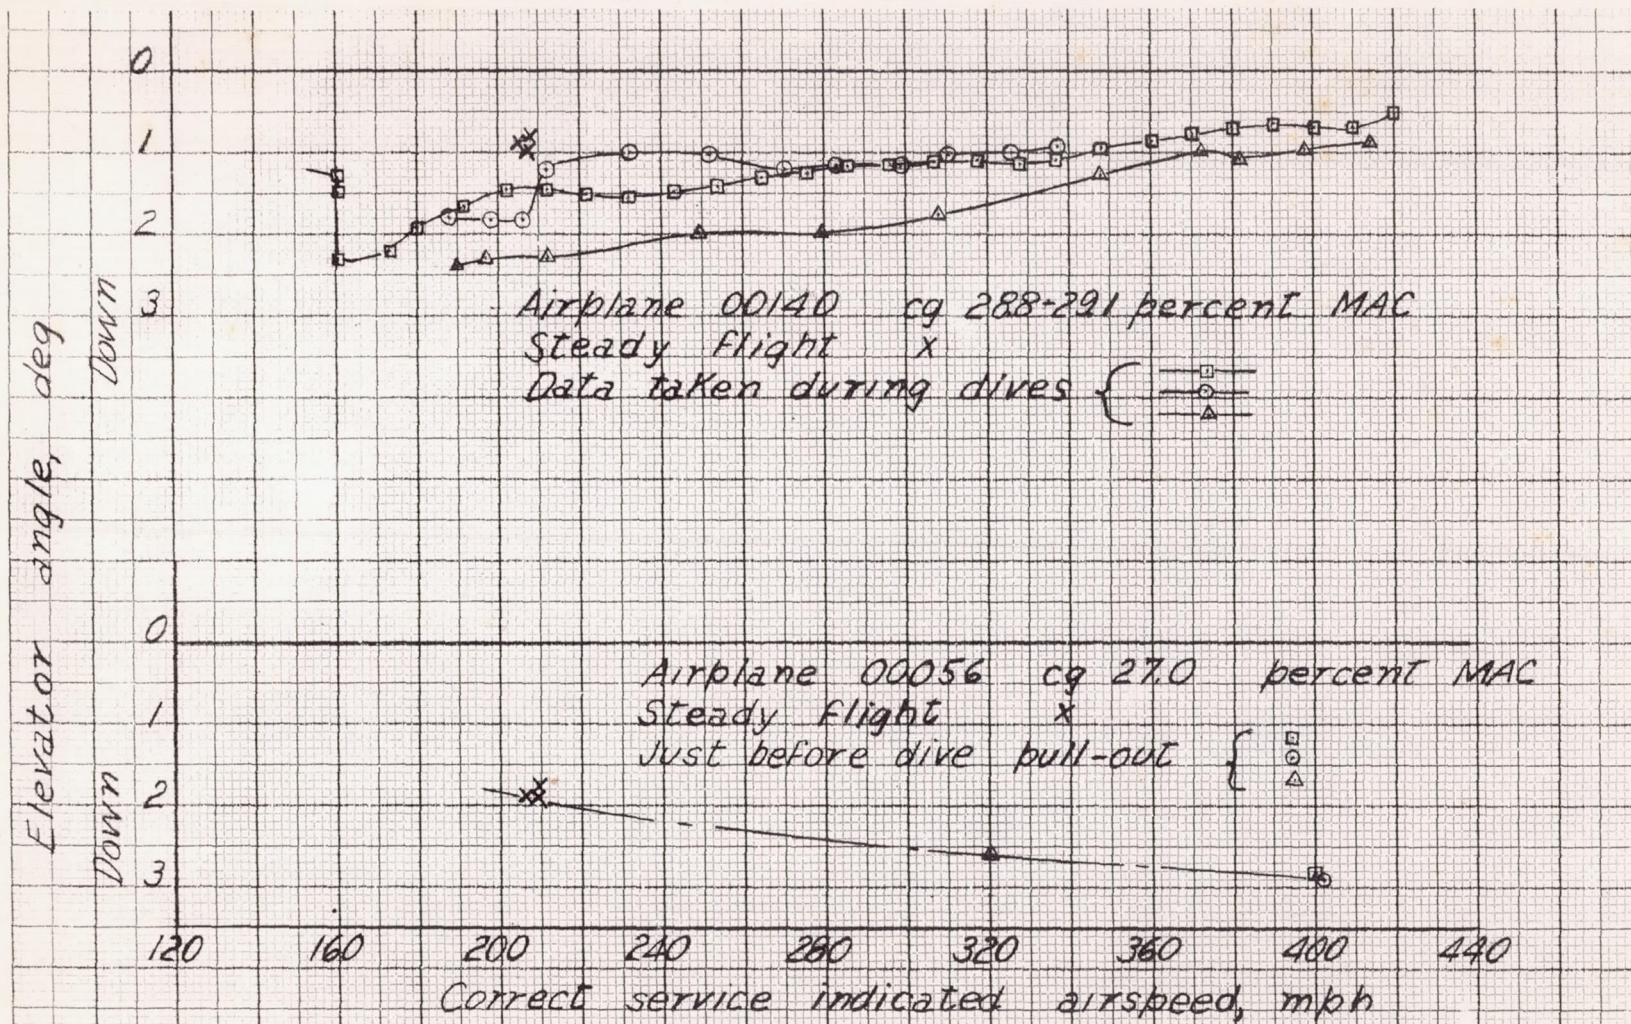 0
1
2
3
Airplane 00140 cg 288-291 percent MAC
Steady flight x
Data taken during dives
Elevator angle, deg
Down
0
1
2
3
Down
Airplane 00056 cg 27.0 percent MAC
Steady flight x
Just before dive pull-out
120 160 200 240 280 320 360 400 440
Correct service indicated airspeed, mph